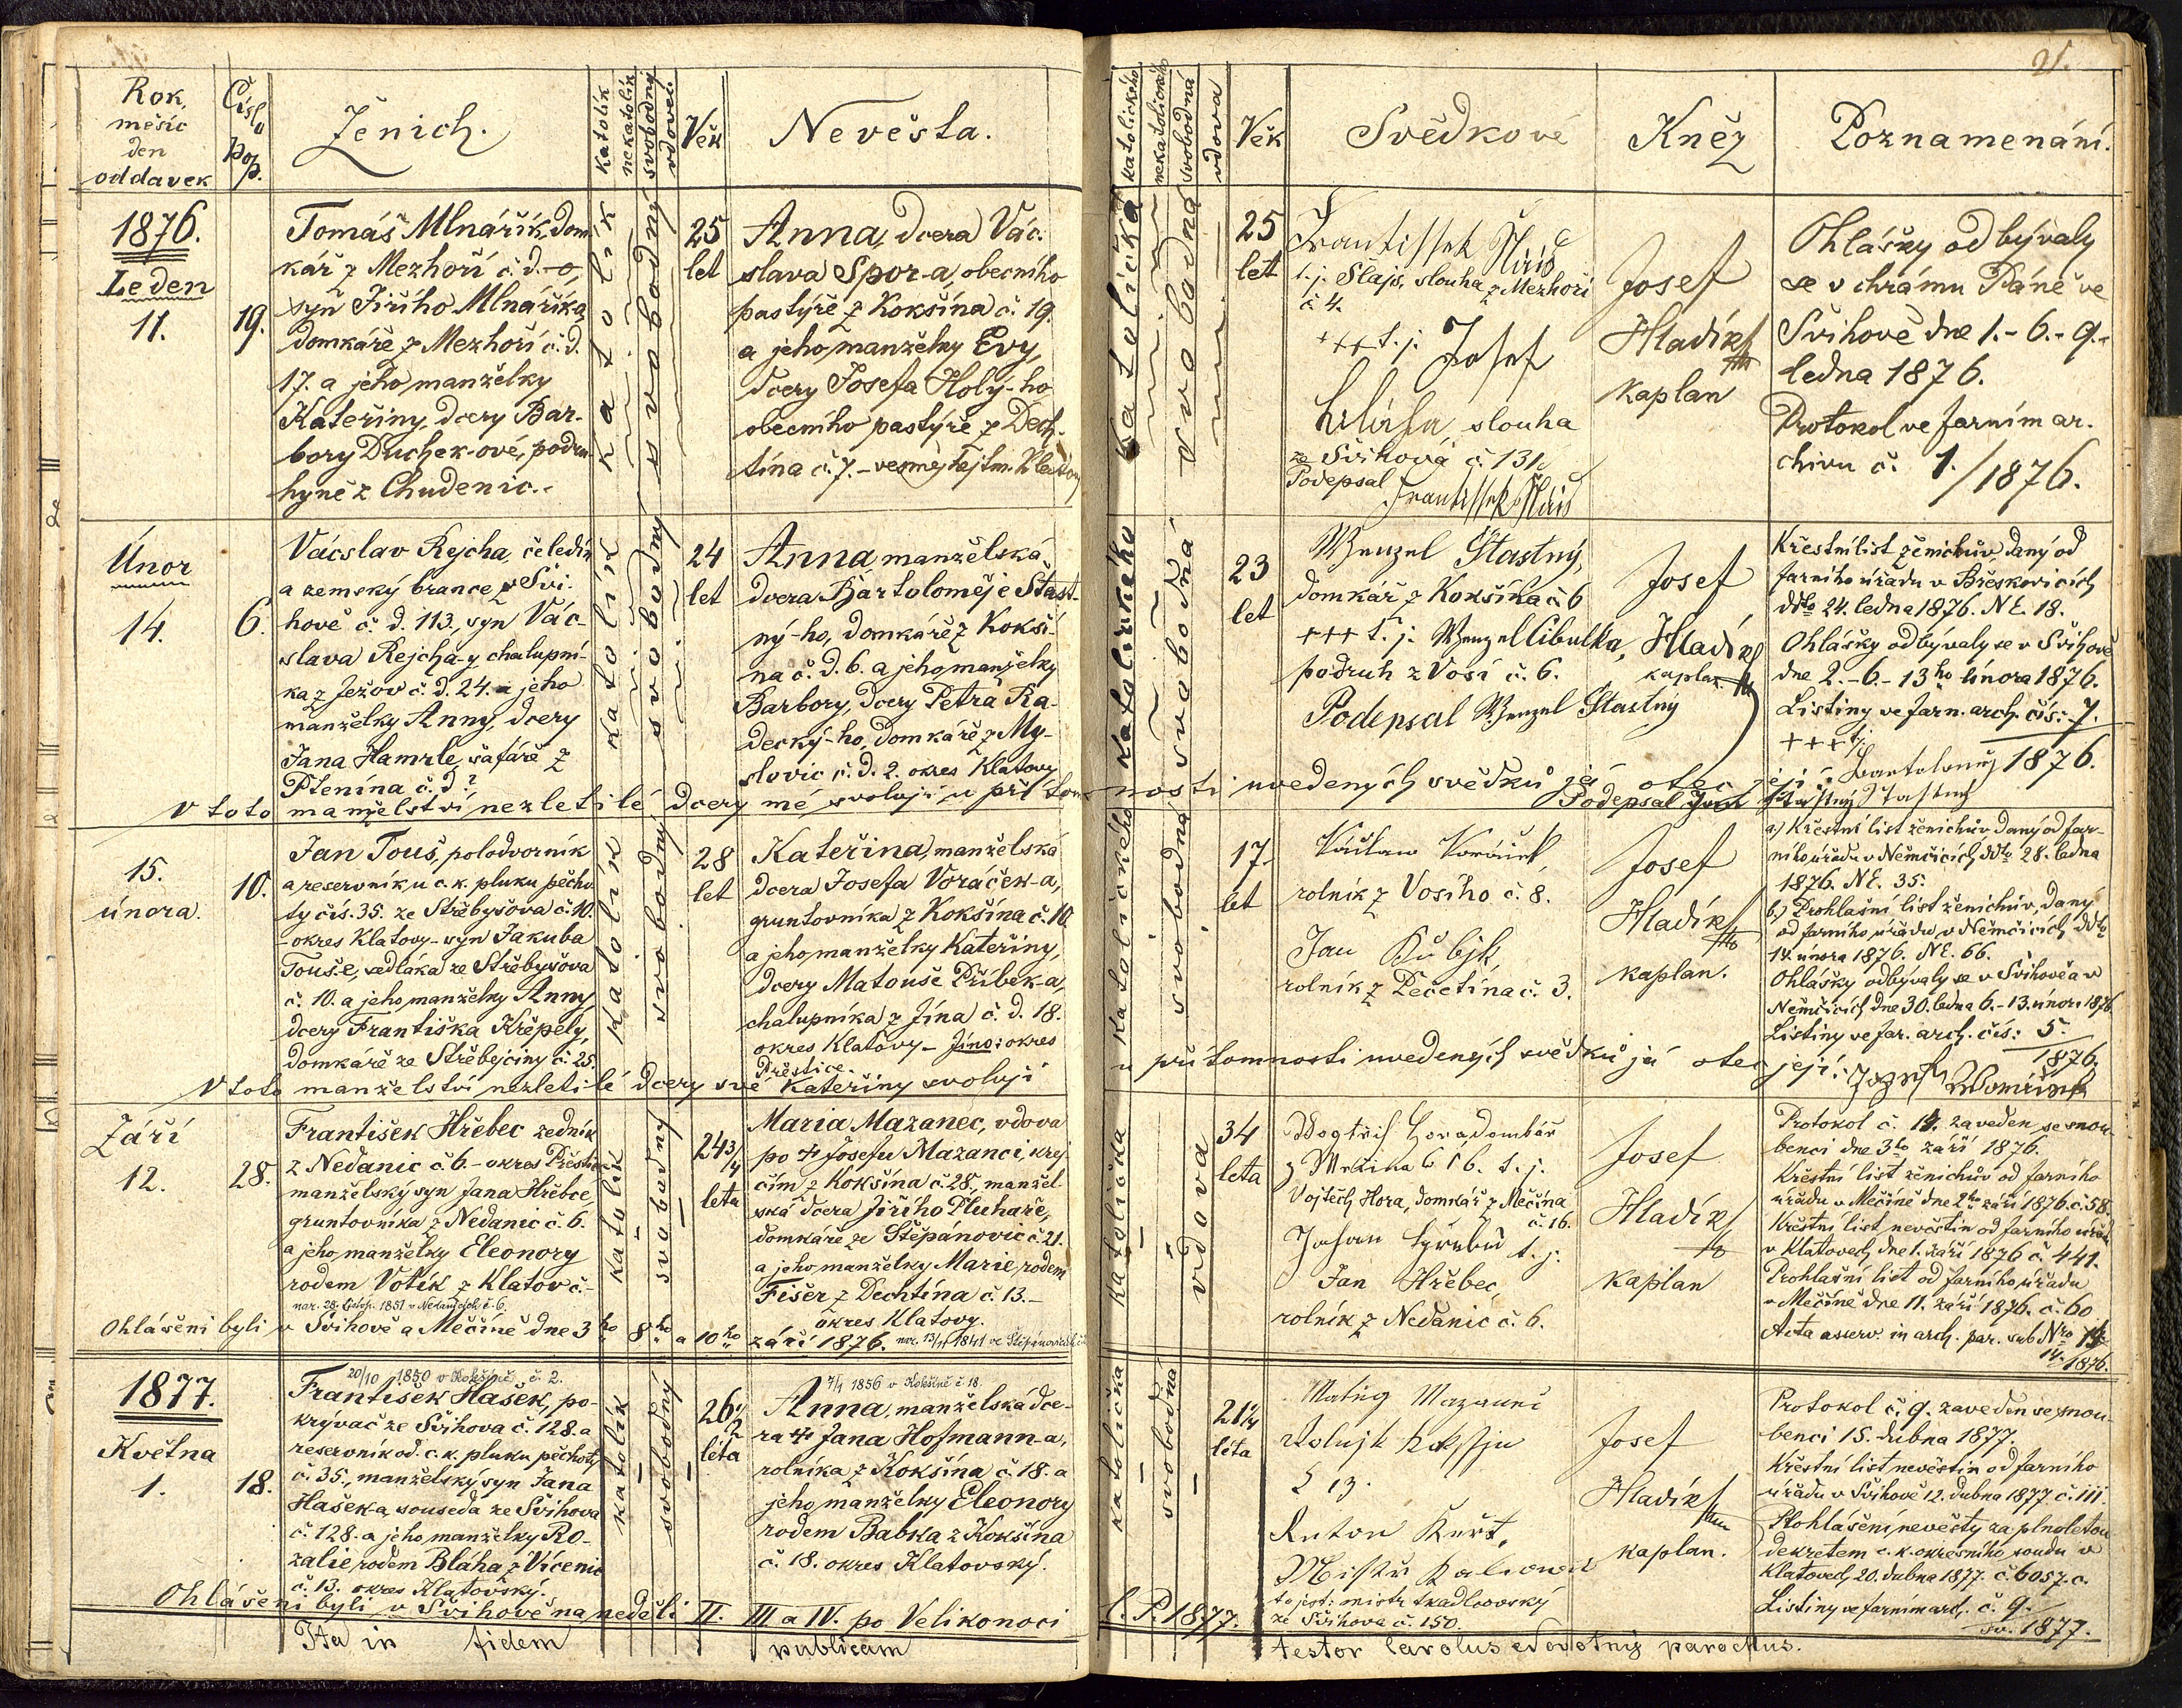 21.
Rok, měsíc den oddavek
Číslo pop.
Ženich.
katolík
nekatolík
svobodný
vdovec
Věk
Nevěsta.
katolického
nekatolického
svobodná
vdova
Věk
Svědkové
Kněz
Poznamenání.
1876.
Leden
11.
19.
Tomáš Mlnářík, dom-
kář z Mezhoří č. d. - o,
syn Jiřího Mlnáříka,
domkáře z Mezhoří č. d.
17. a jeho manželky
Kateřiny, dcery Bar-
bory Duchek-ové, podru-
hyně z Chudenic.-
katolík
svobodný
25
let
Anna, dcera Vác-
slava Spor-a, obecního
pastýře z Kokšína č. 19.
a jeho manželky Evy,
dcery Josefa Holý-ho
obecního pastýře z Dech-
tína č. 7. -
katolička
svobodná
25
let
Frantissek
t. j. Šlajs, slouha z Mezhoří
č 4.
+++ t. j. Josef
slouha
ze Švihova č. 131.
Podepsal
Frantissek
Josef
Hladík
kaplan
Ohlášky odbývaly
se v chrámu Páně ve
Švihově dne 1.- 6.- 9.-
ledna 1876.
Protokol ve farním ar-
chivu č. 1./1876.
Únor
14.
6.
Vácslav Rejcha, čeledín
a zemský branec ve Švi-
hově č. d. 113., syn Vác-
slava Rejcha-y chalupní-
ka z Ježov č. d. 24. a jeho
manželky Anny, dcery
Jana Hamrle, šafáře z
Ptenína č. d. ?
katolík
svobodný
24
let
Anna, manželská
dcera Bartoloměje Šťast-
ný-ho, domkáře z Kokší-
na č. d. 6. a jeho manželky
Barbory, dcery Petra Ra-
decký-ho, domkáře z My-
slovic č. d. 2. okres Klatovy
katolického
svobodná
23
let
Wenzel Štastný,
domkář z Kokšína č. 6
+++ t. j. Wenzel Cibulka,
podruh z Vosí č. 6.
Podepsal Wenzel Štastný
Josef
Hladík
kaplan
Křestní list ženichův, daný od
farního úřadu v Břeskovicích
ddto 24. ledna 1876. N E. 18.
Ohlášky odbývaly se v Švihově
dne 2.- 6.- 13ho února 1876.
Listiny ve farn. arch. čís: 7.
1876.
+++ t. j. Bartolomněj
Štastný
V toto manželství nezletilé dcery mé svoluji u přítomnosti uvedených svědků já otec její:
Podepsal
15.
února.
10.
Jan Touš, polodvorník
a reservník u c. k. pluku pěcho-
ty čís. 35. ze Střebyšova č. 10.
- okres Klatovy - syn Jakuba
Touš-e, sedláka ze Střebyšova
č. 10. a jeho manželky Anny,
dcery Františka Křepely,
domkáře ze Střebejčiny č. 25.
katolík
svobodný
28
let
Kateřina, manželská
dcera Josefa Voráček-a,
gruntovníka z Kokšína č. 10.
a jeho manželky Kateřiny,
dcery Matouše Přibek-a,
chalupníka z Jína č. d. 18.
okres Klatovy - Jíno: okres
Přeštice.
katolického
svobodná
17
let
Václaw Koráček,
rolník z Vosího č. 8.
Jan Kubjk,
rolník z Pečetína č. 3.
Josef
Hladík
kaplan.
a.) Křestní list ženichův daný od far-
ního úřadu v Němčicích ddto 28. ledna
1876. N E. 35.
b.) Prohlašní list ženichův, daný
od farního úřadu v Němčicích ddto
14. února 1876. N E. 66.
Ohlášky odbývaly se v Švihově a v
Němčicích dne 30. ledna 6. - 13. února 1876
Listiny ve far. arch. čís: 5.
1876.
V toto manželství nezletilé dcery své Kateřiny svoluji u přítomnosti uvedených svědků já otec její: Jozef
Září
12.
28.
František Hřebec zedník
z Nedanic č. 6. - okres Přeštice
manželský syn Jana Hřebce
gruntovníka z Nedanic č. 6.
a jeho manželky Eleonory
rodem Votík z Klatov č. -
nar. 28. listop. 1851 v Nedanicích č. 6.
katolík
svobodný
24 3/4
leta
Maria Mazanec, vdova
po † Josefu Mazanci, krej-
čím z Kokšína č. 28., manžel-
ská dcera Jiřího Pluhaře,
domkáře ze Štěpánovic č. 21.
a jeho manželky Marie, rodem
Fišer z Dechtína č. 13. -
okres Klatovy.
katolička
vdova
34
leta
Wogtěch Hora, domkář
z Mečina č 16. t. j.
Vojtěch Hora, domkář z Mečína
č. 16.
Johan t. j.
Jan Hřebec,
rolník z Nedanic č. 6.
Josef
Hladík
kaplan
Protokol č. 14. zaveden se snou-
benci dne 3ho září 1876.
Křestní list ženichův od farního
úřadu v Mečíně dne 2ho září 1876. č. 58.
Křestní list nevěstin od farního úřadu
v Klatovech dne 1. září 1876 č. 441.
Prohlašní list od farního úřadu
v Mečíně dne 11. září 1876. č. 60
Acta asserv. in arch. par. sub Nro 14.
14./1876.
Ohlášeni byli v Švihově a Mečíně dne 3ho 8ho a 10ho září 1876. nar. 13/11 1841 ve Štěpánovicích
1877.
Května
1.
18.
20/10 1850 v Kokšíně č. 2.
František Hašek, po-
krývač ze Švihova č. 128. a
reservník od c. k. pluku pěchoty
č. 35., manželský syn Jana
Hašeka, souseda ze Švihova
č. 128. a jeho manželky Ro-
zalie, rodem Bláha z Vícenic
č. 13. okres Klatovský.
katolík
svobodný
26 1/2
léta
7/4 1856 v Kokšíně č. 18.
Anna, manželská dce-
ra † Jana Hofmann-a,
rolníka z Kokšína č. 18. a
jeho manželky Eleonory
rodem Babka z Kokšína
č. 18. okres Klatovský.
katolička
svobodná
21 1/4
léta
Matěg Mazanec
č 13.
Anton Kurt,
Mistr
to jest: mistr tkadlcovský
ze Švihova č. 150.
Josef
Hladík
kaplan.
Protokol č. 9. zaveden se snou-
benci 15. dubna 1877.
Křestní list nevěstin od farního
úřadu v Švihově 12. dubna 1877 č. 111.
Prohlášení nevěsty za plnoletou
dekretem c. k. okresního soudu v
Klatovech, 20. dubna 1877. č. 6057. c.
Listiny ve farním arch. č. 9.
1877.
Ohlášeni byli v Švihově na neděli II. III a IV. po Velikonoci l. P. 1877.
Ita in fidem publicam testor Carolus Novotný parochus.